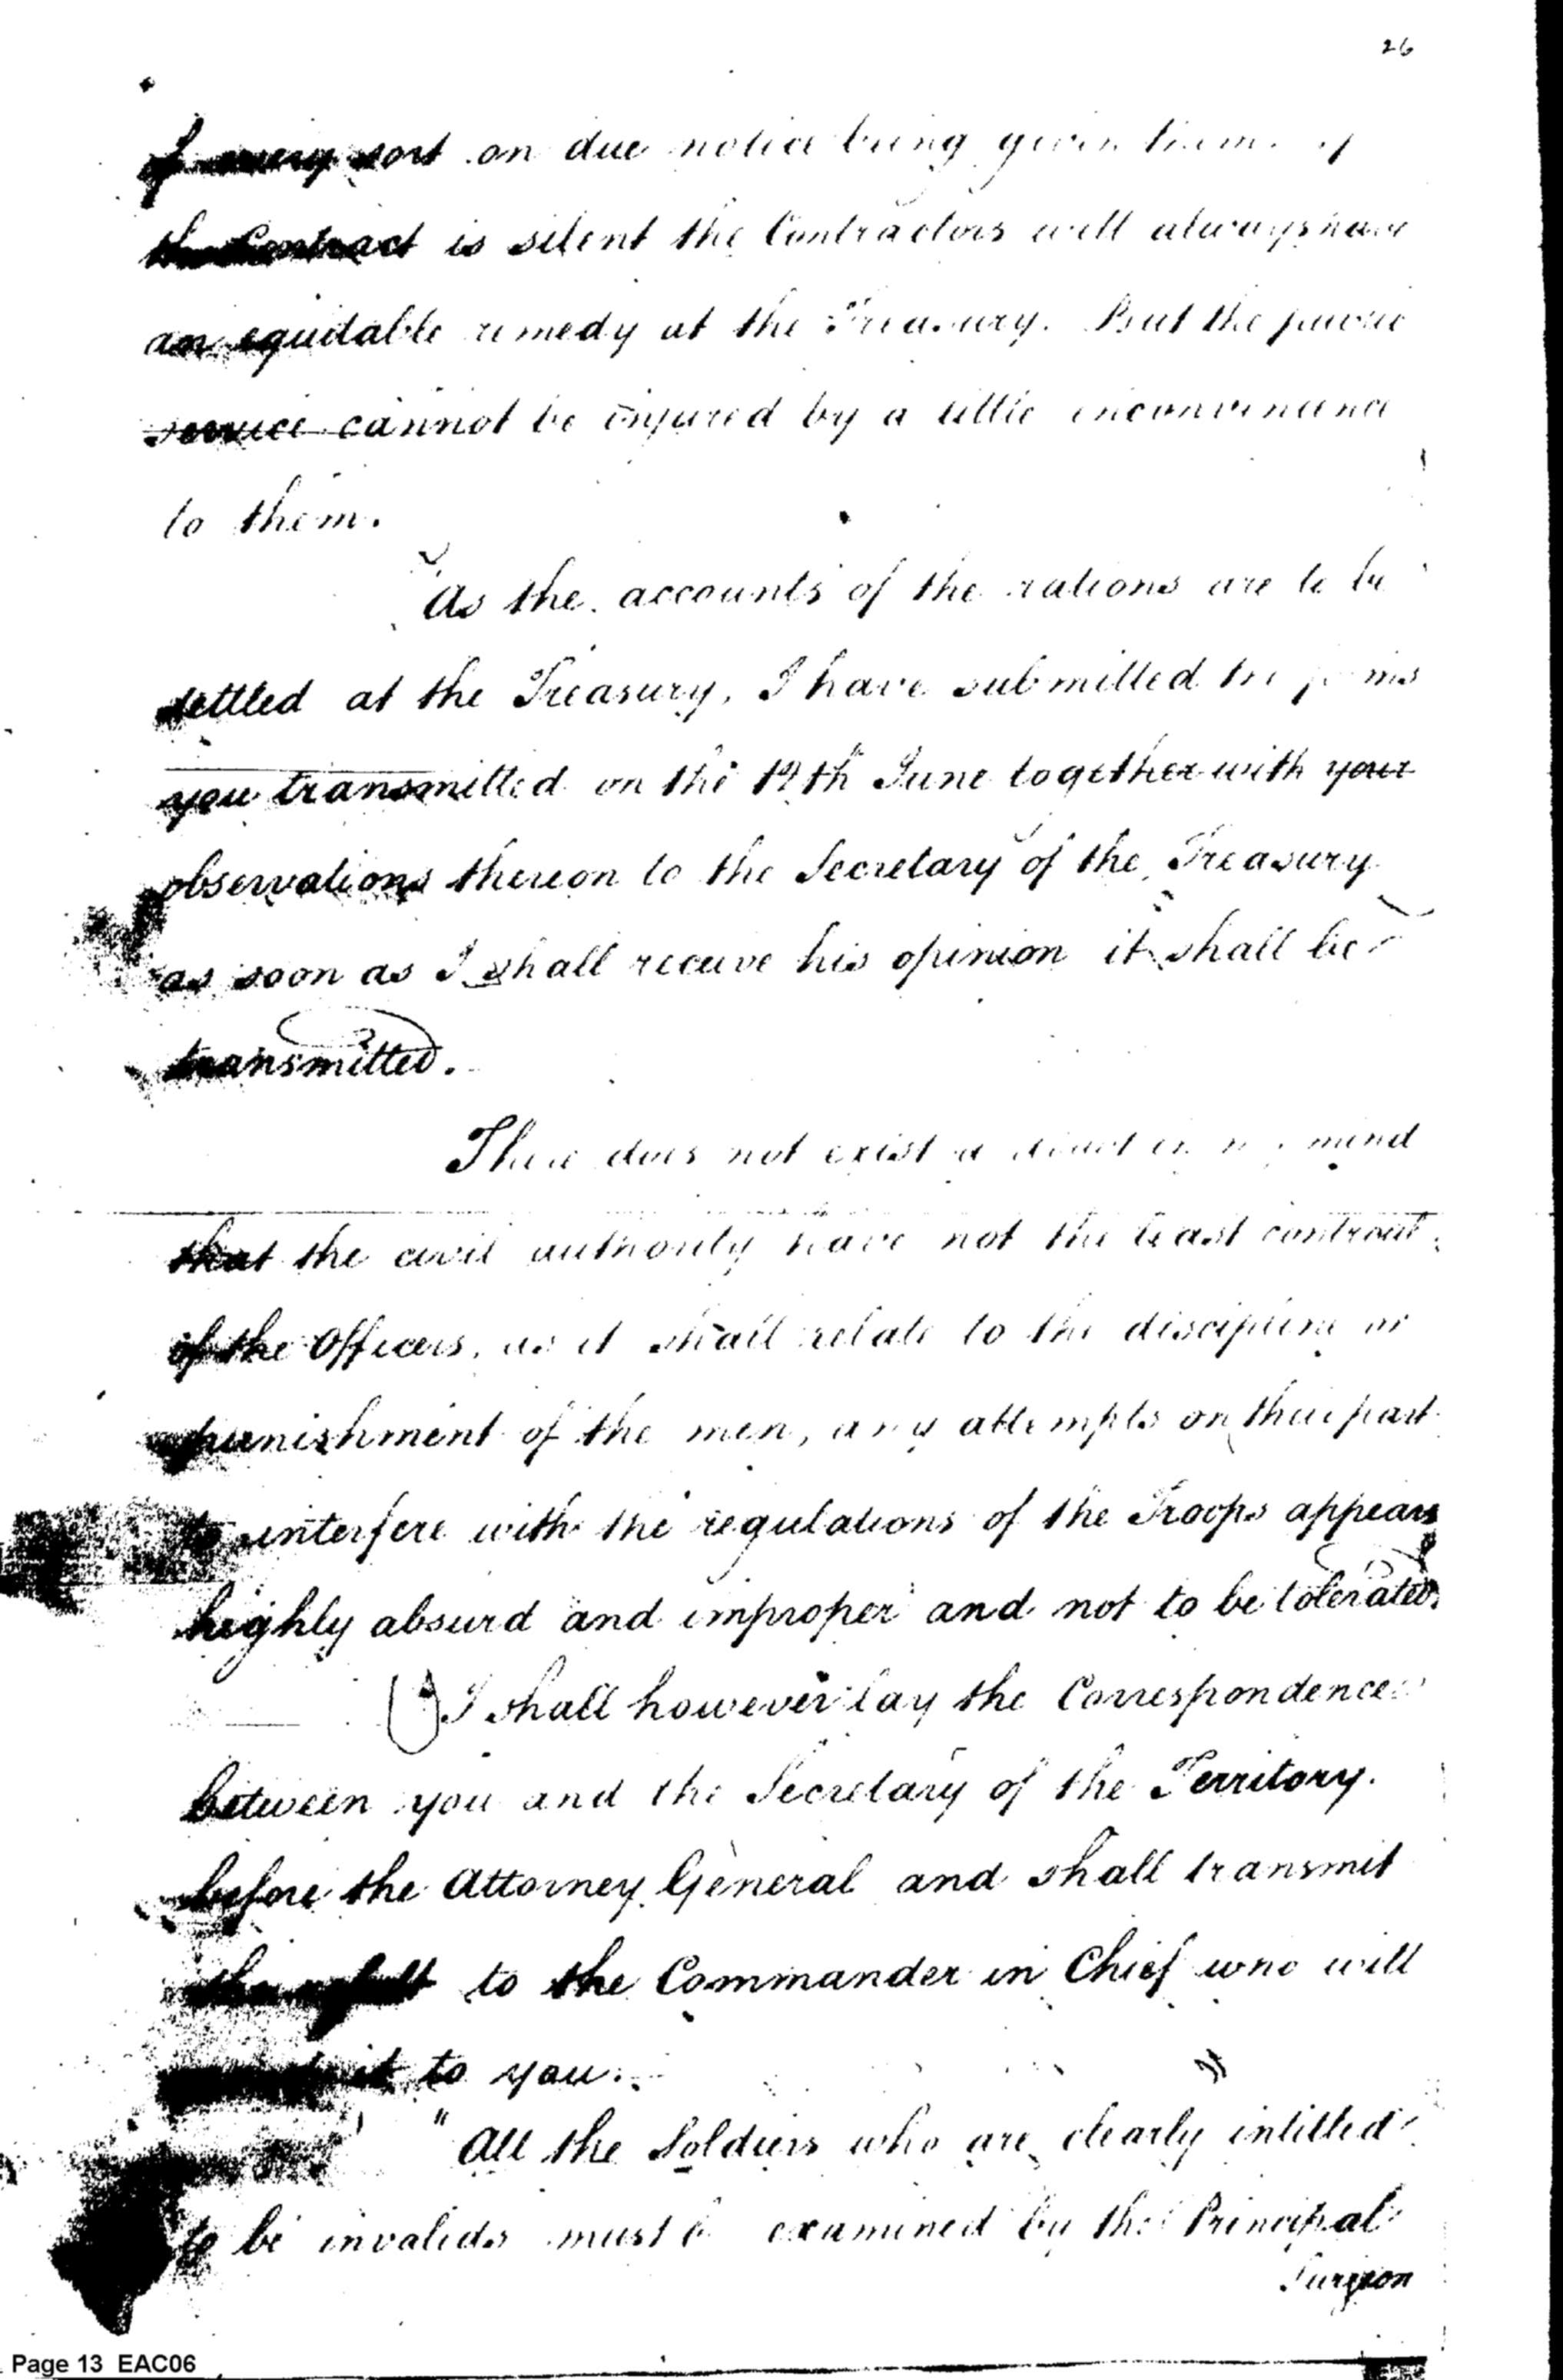 26
of every sort on due notice being given them. if
the Contract is silent the Contractors will always have
an equitable remedy at the Treasury. But the public
service cannot be injured by a little inconvenience
to them.
As the accounts of the rations are to be
settled at the Treasury, I have submitted the forms
you transmitted on the th June together with your
observations thereon to the Secretary of the Treasury
as soon as I shall receive his opinion it shall be
transmitted.
There does not exist a doubt in my mind
that the civil authority have not the least controul
of the Officers, as it shall relate to the discipline or
punishment of the men, any attempts on their part
to interfere with the regulations of the Troops appears
highly absurd and improper and not to be tolerated.
I shall however lay the Correspondence
between you and the Secretary of the Territory.
before the Attorney General and shall transmit
the result to the Commander in Chief who will
it to you.
"All the Soldiers who are clearly intitled
to be invalids must be examined by the Principal
Surgeon
Page 13 EAC06